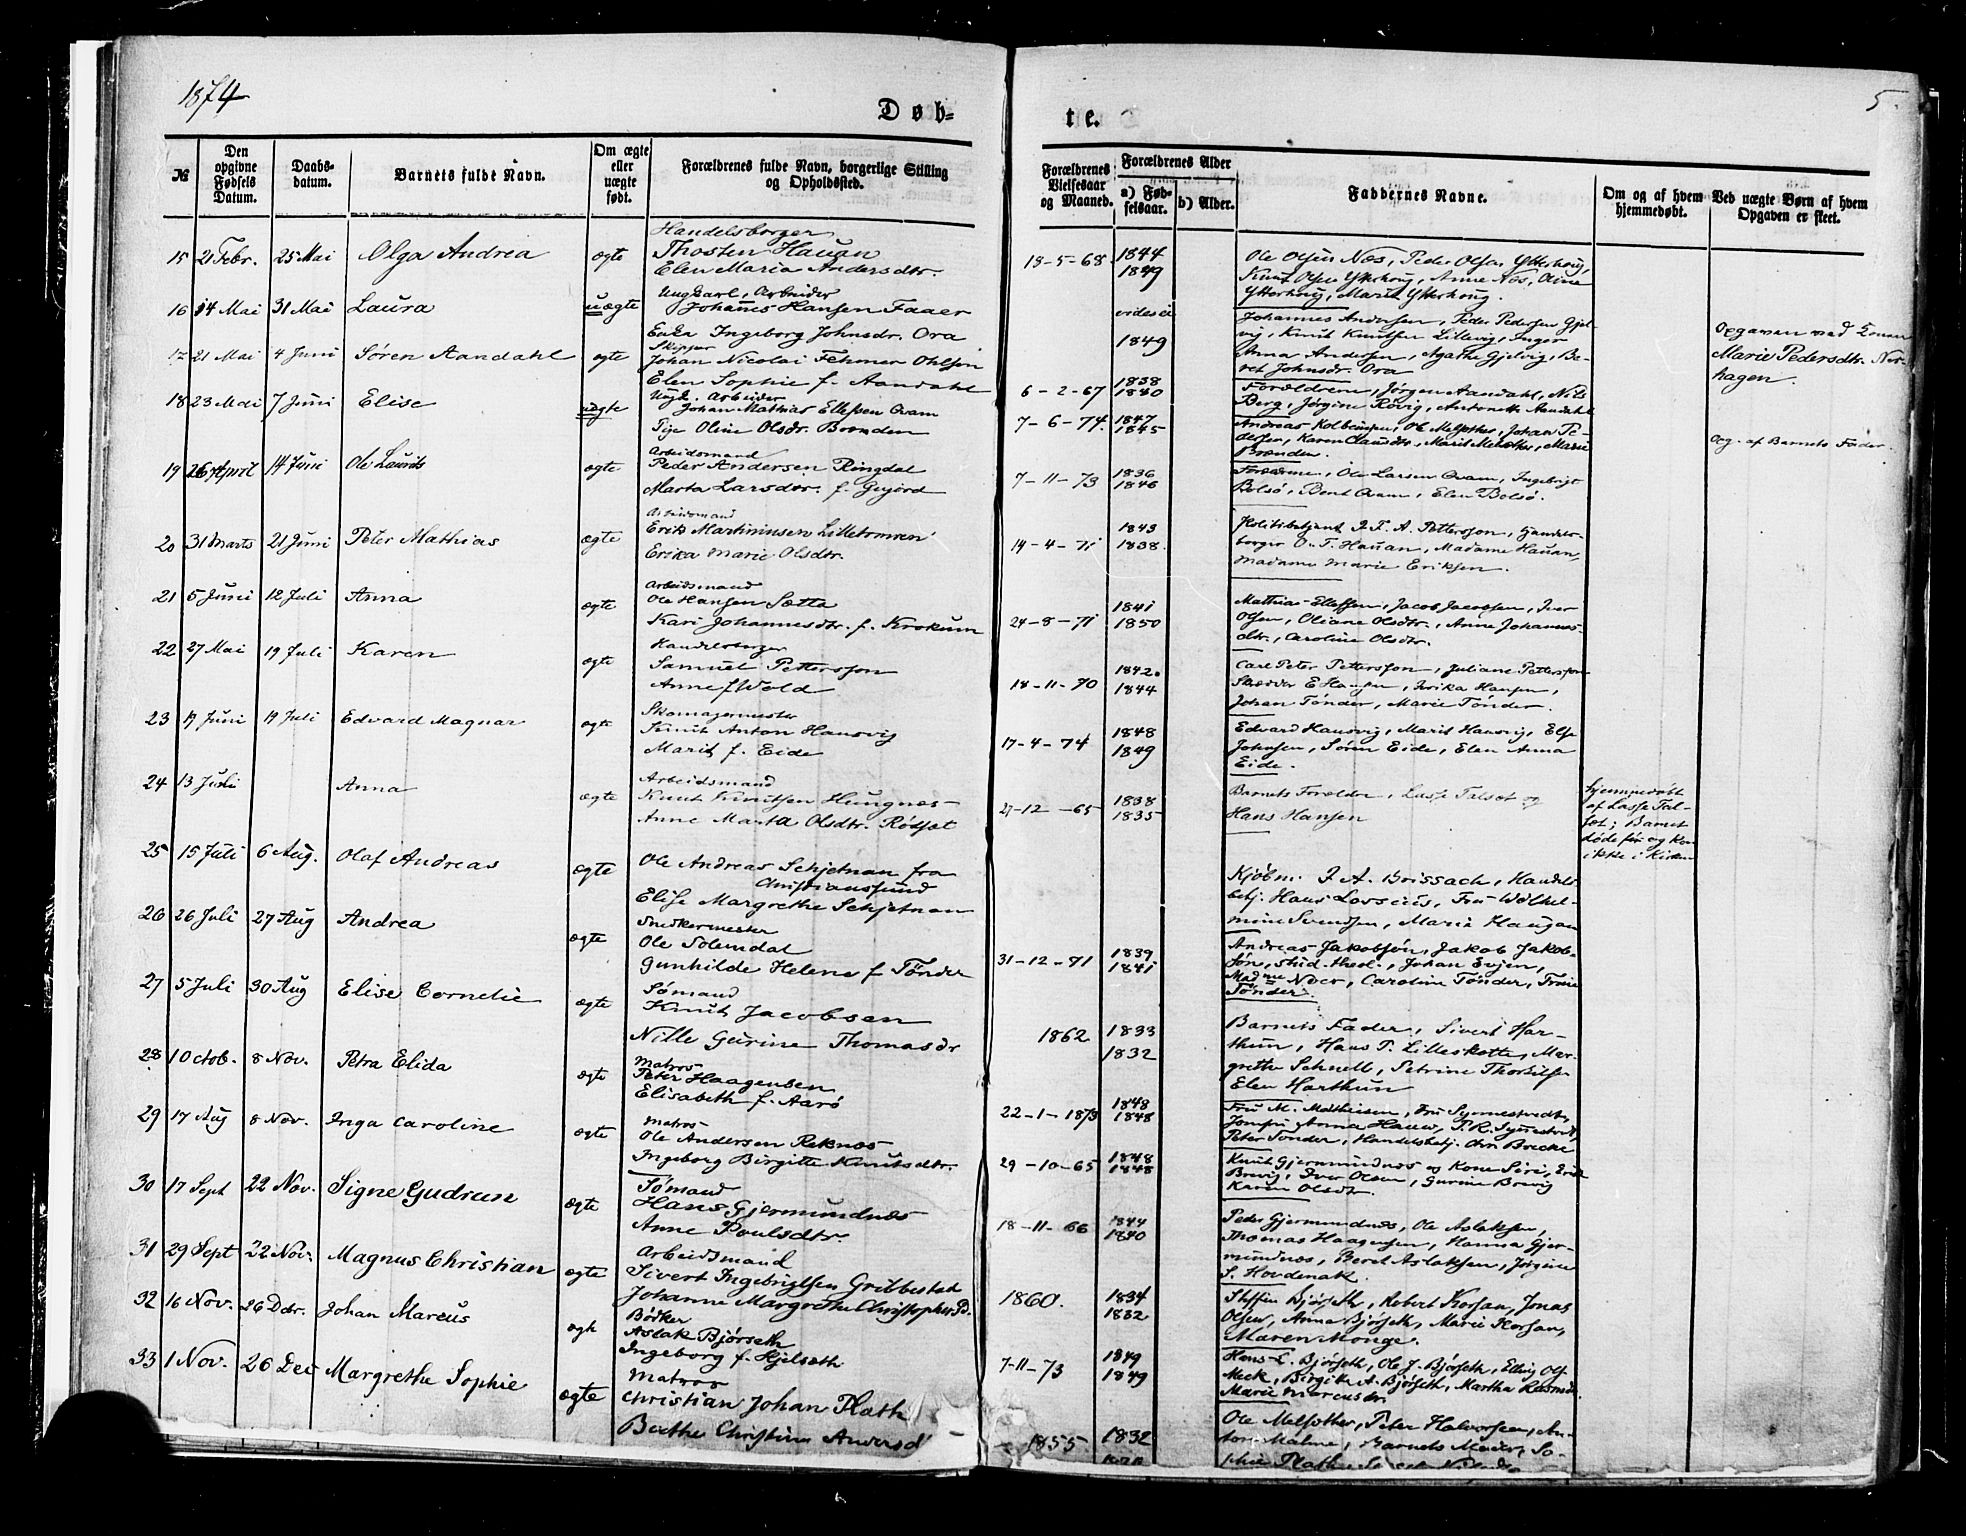 1874
5.
Døb-
te.
№
Den opgivne Fødsels Datum.
Daabs-datum.
Barnets fulde Navn.
Om ægte eller uægte født.
Forældrenes fulde Navn, borgerlige Stilling og Opholdssted.
Forældrenes Vielsesaar og Maaned.
Forældrenes Alder
a) Fød-selsaar.
b) Alder.
Faddernes Navne.
Om og af hvem hjemmedøbt.
Ved uægte Børn af hvem Opgaven er skeet.
15 21 Febr. 25 Mai Olga Andrea ægte
Handelsborger
Thosten Hauan
Elen Maria Andersdtr.
18-5-68 1844
1849
Ole Olsen Næs, Peder Olsen Ytterhoug,
Knut Olsen Ytterhoug, Anne Nøs, Oline
Ytterhoug, Marit Ytterhoug.
16 14 Mai 31 Mai Laura uægte
Ungkarl, Arbeider
Johannes Hansen Faaer
Enka Ingeborg Johnsdr. Ora
1849
Johannes Andersen, Peder Pedersen Gjel-
vig, Knut Knutsen Lillevig, Inger
Anna Andersen, Agathe Gjelvig, Be-
ret Johnsdr. Ora
Opgaven ved Konen
Marie Pedersdtr. Nor-
hagen.
17 21 Mai 4 Juni Søren Aandahl ægte
Skipper
Johan Nicolai Fehmer Ohlsen
Elen Sophie f. Aandahl
6-2-67 1838
1840
Forældrene, Jørgen Aandahl, Nils
Berg, Jørgine Røvig, Antonette Aandahl
18 23 Mai 7 Juni Elise uægte
Ungk. Arbeider
Johan Mathias Ellefsen Qvam
Pige Oline Olsdr. Brænden
7-6-74. 1847
1845
Andreas Kolbensen, Ole Melsæther, Johan Pe-
dersen, Karen Clausdtr., Marit Melsæther, Marie
Brænden.
Og. af Barnets Fader.
19 26 April 14 Juni Ole Laurits ægte
Arbeidsmand
Peder Andersen Ringdal
Marta Larsdtr. f. Gujord
7-11-73 1836
1846
Forældrene, Ole Larsen Qvam, Ingebrigt
Bolsø, Bent Qvam, Elen Bolsø.
20 31 Marts 21 Juni Peter Mathias ægte
Arbeidsmand
Erik Martinussen Lilletrønen
Erika Marie Olsdtr.
14-4-71 1843
1838.
Politibetjent P. T. A. Pettersson, Handels-
borger O. T. Hauan, Madame Hauan,
Madame Marie Eriksen.
21 5 Juni 12 Juli Anna ægte
Arbeidsmand
Ole Hansen Sætta
Kari Johannesdtr. f. Krokum
24-8-71 1841
1850
Mathias Ellefsen, Jacob Jacobsen, Iver
Olsen, Oliane Olsdtr., Anne Johannes-
dtr., Caroline Olsdtr.
22 27 Mai 19 Juli Karen ægte
Handelsborger
Samuel Pettersson
Anne f Wold
18-11-70 1842.
1844
Carl Peter Pettersson, Juliane Pettersson
Skrædder E Hansen, Erika Hansen,
Johan Tønder, Marie Tønder.
23 19 Juni 19 Juli Edvard Magnar ægte
Skomagermester
Knut Anton Hausvig
Marit f. Eide
17-4-74 1848
1849
Edvard Hausvig, Marit Hausvig, Else
Johnsen, Søren Eide, Elen Anna
Eide.
24 13 Juli Anna ægte
Arbeidsmand
Knut Knutsen Haugnæs
Anne Marta Olsdtr. Rødsæt
27-12-65 1838
1835
Barnets Forældre, Lasse Talsæt og
Hans Hansen
Hjemmedøbt
af Lasse Tal-
sæt; Barnet
døde før og kom
ikke i Kirken
25 15 Juli 6 Aug. Olaf Andreas ægte
Ole Andreas Schjetnan fra
Christianssund
Elise Margrethe Schjetnan
Kjøbm. P. A. Brissach, Handels-
betj. Hans Lossius, Fru Wilhel-
mine Svendsen, Maria Haugan
26 26 Juli 27 Aug Andrea ægte
Snedkermester
Ole Solemdal
Gunhilde Helene f Tønder
31-12-71 1839
1841
Andreas Jakobsøn, Jakob Jakob-
søn, stud. theol., Johan Evjen,
Mad me Noer, Caroline Tønder,
Tønder.
27 5 Juli 30 Aug Elise Cornelie ægte
Sømand
Knut Jacobsen
Nille Gurine Thomasdr
1862 1833
1832
Barnets Fader, Sivert Har-
thun, Hans P. Lilleskotte, Mar-
grethe Schnell, Petrine Thorkilsen
Elen Harthun
28 1 Octob. 8 Nov. Petra Elida ægte
Matros
Peter Haagensen
Elisabeth f. Aarø
22-1-1873 1848
1848
Fru M. Mathiesen, Fru Synnestvedt,
Jomfru Anna Hauw, P. R. Synnestvedt,
Peter Tønder, Handelsbetj. Chr. Brecke
29 17 Aug 8 Nov. Inga Caroline ægte
Matros
Ole Andersen Reknæs
Ingeborg Birgitte Knutsdtr.
29-10-65 1848
1848
Knut Gjermundnæs og Kone Siri, Erik
Brevig, Iver Olsen, Gurine Brevig
Karen Olsdtr.
30 17 Sept 22 Nov. Signe Gudrun ægte
Sømand
Hans Gjermundnæs
Anne Poulsdtr.
18-11-66 1844
1840
Peder Gjermundnæs, Ole Aslaksen,
Thomas Haagensen, Hanna Gjer-
mundnæs, Beret Aslaksen, Jørgine
S. Hovdenak.
31 29 Sept 22 Nov. Magnus Christian ægte
Arbeidsmand
Sivert Ingebrigtsen Gribbested
Johanne Margrethe Christophersd.
1860. 1834
1832
Steffen Bjørseth, Robert Korsan, Jonas
Olsen, Anna Bjørseth, Marie Korsan,
Maren Monge.
32 16 Nov. 26 Dec. Johan Marcus ægte
Bødker
Aslak Bjørseth
Ingeborg f. Hjelseth
7-11-73 1849
1849
Hans L. Bjørseth, Ole J. Bjørseth, Elling Ols.
Meek, Birgitte A. Bjørseth, Martha Rasmusd.
Marie Marcusdtr
33 1 Nov. 26 Dec Margrethe Sophie ægte
Matros
Christian Johan Plath
Berthe Christine Andersd
1855 1832
Ole Melsæther, Peter Halvorsen, An-
ton Malme, Barnets Moder, So-
phie Plath